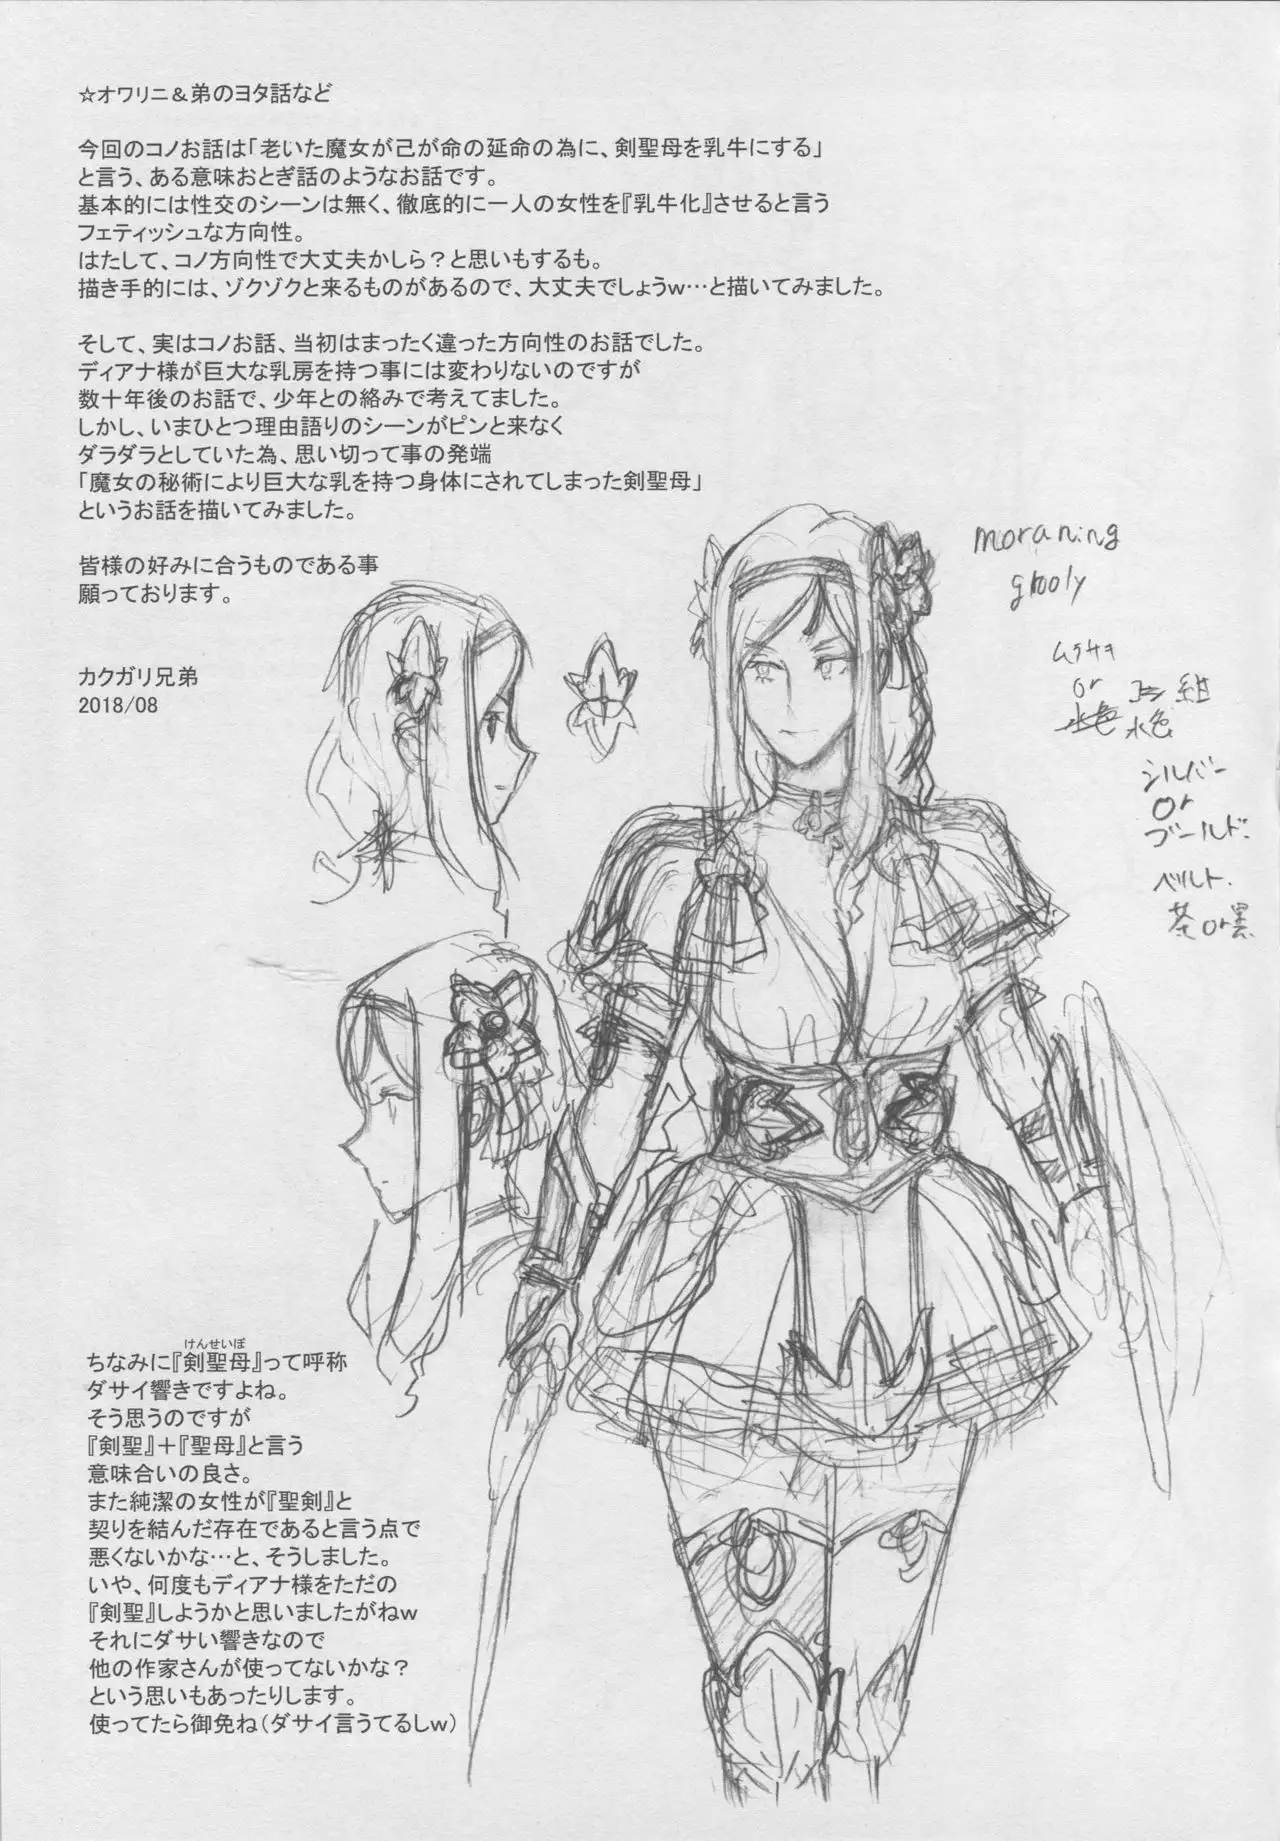 ☆オワリニ＆弟のヨタ話など
今回のコノお話は「老いた魔女が己が命の延命の為に、剣聖母を乳牛にする」
と言う、ある意味おとぎ話のようなお話です。
基本的には性交のシーンは無く、徹底的に一人の女性を『乳牛化』させると言う
フェティッシュな方向性。
はたして、コノ方向性で大丈夫かしら？と思いもするも。
描き手的には、ゾクゾクと来るものがあるので、大丈夫でしょうｗ…と描いてみました。
そして、実はコノお話、当初はまったく違った方向性のお話でした。
ディアナ様が巨大な乳房を持つ事には変わりないのですが
数十年後のお話で、少年との絡みで考えてました。
しかし、いまひとつ理由語りのシーンがピンと来なく
ダラダラとしていた為、思い切って事の発端
「魔女の秘術により巨大な乳を持つ身体にされてしまった剣聖母」
というお話を描いてみました。
皆様の好みに合うものである事
願っております。
カクガリ兄弟
2018/08
moraning
glooly
ムラサキ
or
水色
紺
水色
シルバー
or
ゴールド
ベルト.
茶or黒
けんせいぼ
ちなみに『剣聖母』って呼称
ダサイ響きですよね。
そう思うのですが
『剣聖』＋『聖母』と言う
意味合いの良さ。
また純潔の女性が『聖剣』と
契りを結んだ存在であると言う点で
悪くないかな…と、そうしました。
いや、何度もディアナ様をただの
『剣聖』しようかと思いましたがねｗ
それにダサい響きなので
他の作家さんが使ってないかな？
という思いもあったりします。
使ってたら御免ね（ダサイ言うてるしｗ）